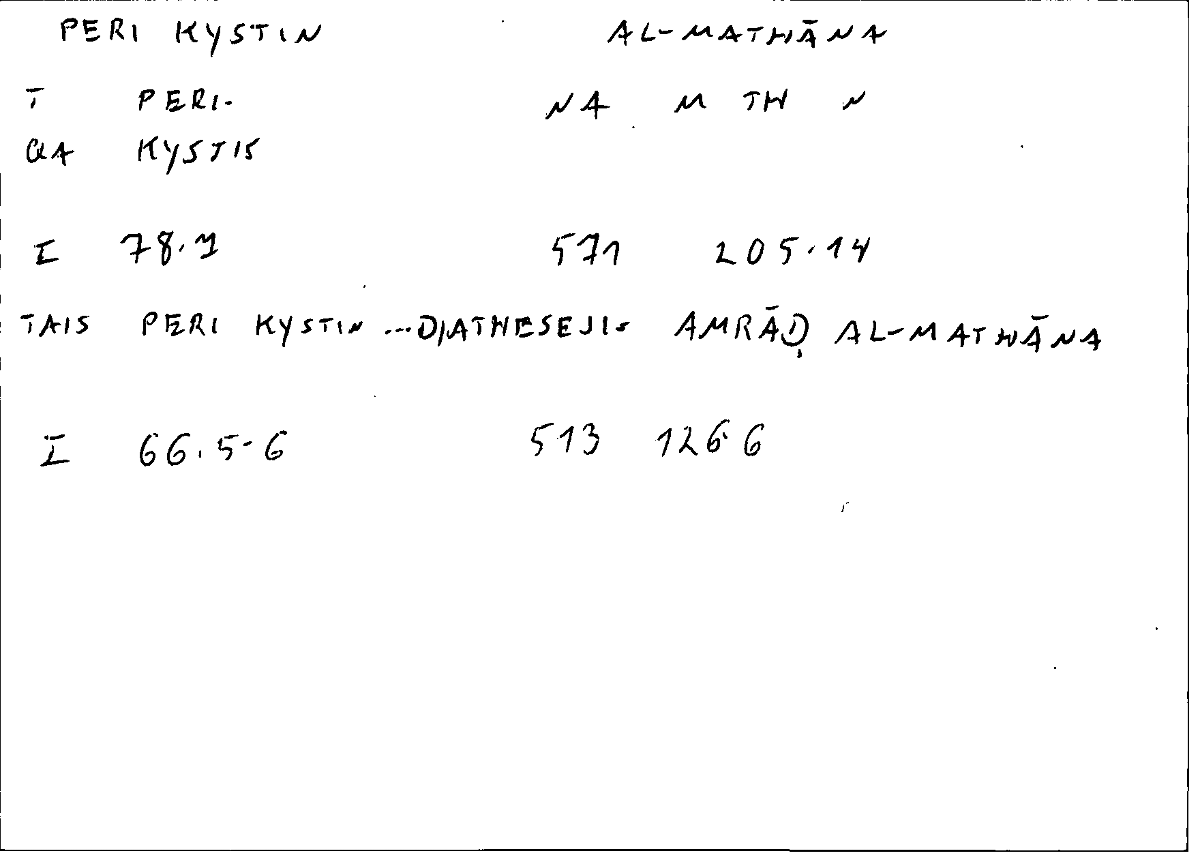 PERI KYSTIN AL-MATHĀNA
T PERI- NA M TH N
QA KYSTIS
I 78.7 571 205.14
TAIS PERI KYSTIN ... DIATHESEJIS AMRĀḌ AL-MATHĀNA
I 66.5-6 513 126.6